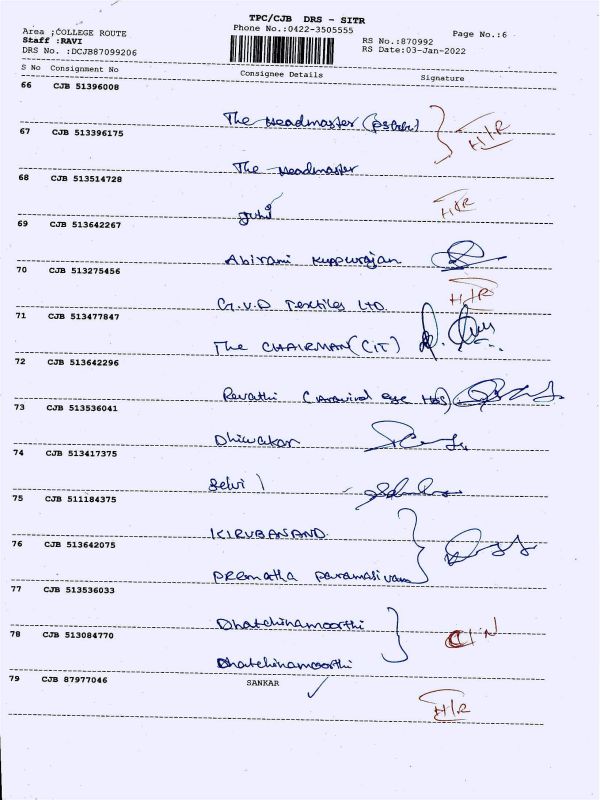 TPC/CJB DRS - SITR
Area ;COLLEGE ROUTE Phone No.:0422-3505555 Page No.:6
Staff :RAVI RS No.:870992
DRS No. :DCJB87099206 RS Date:03-Jan-2022
S No Consignment No Consignee Details Signature
66 CJB 51396008
The Headmaster
67 CJB 513396175 H/R
The Headmaster
68 CJB 513514728
H/R
69 CJB 513642267
Abirami Kuppurajan
70 CJB 513275456
H/R
G.V.D Textiles Ltd
71 CJB 513477847
The CHAIRMAN (CIT)
72 CJB 513642296
Revathi (Aravind eye Hos)
73 CJB 513536041
Dhiwakar
74 CJB 513417375
Selvi
75 CJB 511184375
KIRUBANAND
76 CJB 513642075
Prematha Paramasivam
77 CJB 513536033
Dhatchinamoorthi
78 CJB 513084770
Dhatchinamoorthi
79 CJB 87977046 SANKAR
H/R